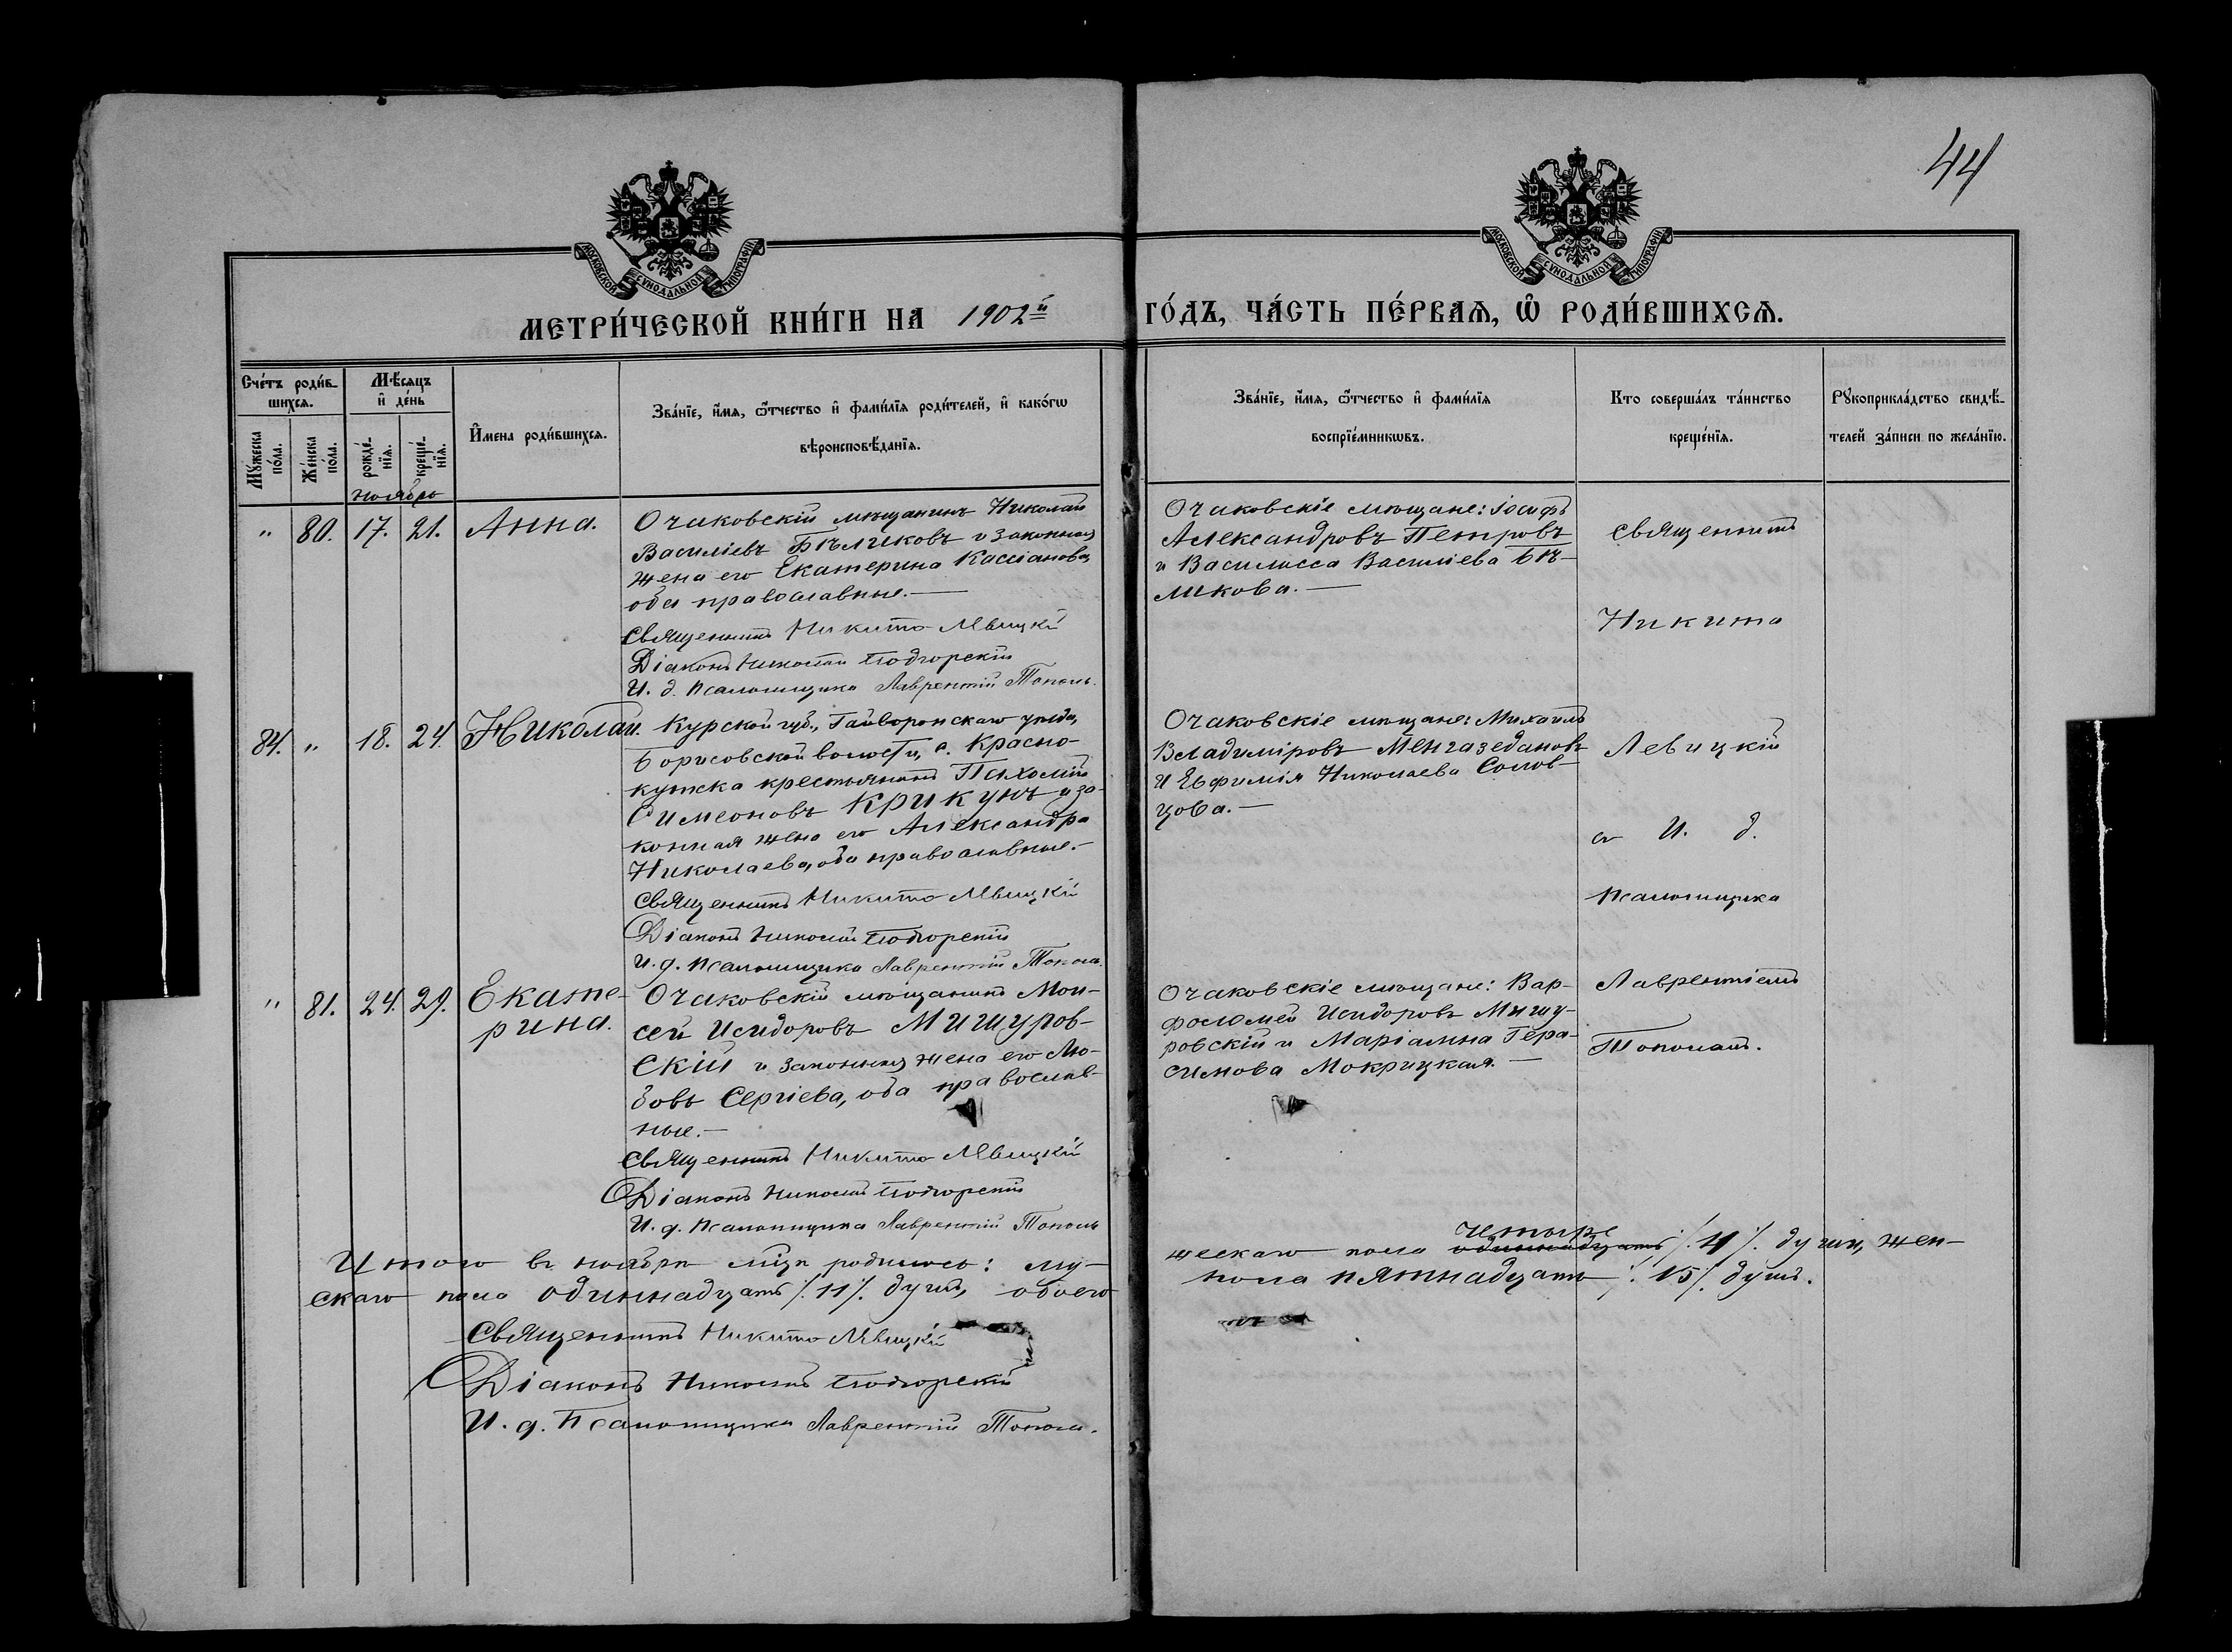 44
МОСКОВСКОЙ СѴНОДАЛЬНОЙ ТИПОГРАФІИ
МОСКОВСКОЙ СѴНОДАЛЬНОЙ ТИПОГРАФІИ
МЕТРИ́ЧЕСКОЙ КНИ́ГИ НА 1902й
ГО́ДЪ, ЧА́СТЬ ПЕ́РВАѦ, Ѽ РОДИ́ВШИХСѦ.
Сче́тъ роди́в-
шихсѧ.
Мꙋ́жеска
по́ла.
Же́нска
по́ла.
Мѣ́сяцъ
и҆ де́нь
рожде́-
нїѧ.
креще́-
нїѧ.
И҆мена роди́вшихсѧ.
Зва́нїе, и҆́мѧ, ѻ҆́тчество и҆ фами́лїѧ роди́телей, и҆ како́гѡ
вѣроисповѣ́данїѧ.
Зва́нїе, и҆́мѧ, ѻ҆́тчество и҆ фами́лїѧ
воспрїе́мникѡвъ.
Кто соверша́лъ та́инство
креще́нїѧ.
Рꙋкоприкла́дство свидѣ́-
телей за́писи по жела́нїю.
ноябрь
" 80. 17. 21. Анна.
Очаковскій мѣщанинъ Николай
Василіевъ Бѣликовъ и законная
жена его Екатерина Кассіанова,
оба православные.—
Священникъ Никита Левицкій
Діаконъ Николай Подгорскій
И. д. псаломщика Лаврентій Тополь.
Очаковскіе мѣщане: Іосифъ
Александровъ Петровъ
и Василисса Василіева Бѣ-
ликова.—
Священникъ
Никита
84. " 18. 24. Николай.
Курской губ., Гайворонскаго уѣзда,
Борисовской волости, с. Красно-
кутска крестьянинъ Пахомій
Симеоновъ Крикунъ и за-
конная жена его Александра
Николаева, оба православные.—
Священникъ Никита Левицкій
Діаконъ Николай Подгорскій
И. д. псаломщика Лаврентій Тополь.
Очаковскіе мѣщане: Михаилъ
Владиміровъ
и Евфимія Николаева Солов-
цова.—
Левицкій
съ И. д.
псаломщика
" 81. 24. 29. Екате-
рина.
Очаковскій мѣщанинъ Мои-
сей Исидоровъ Мишуров-
скій и законная жена его Лю-
бовь Сергіева, оба православ-
ные.—
Священникъ Никита Левицкій
Діаконъ Николай Подгорскій
И. д. псаломщика Лаврентій Тополь
Очаковскіе мѣщане: Вар-
фоломей Исидоровъ Мишу-
ровскій и Маріамна Гера-
симова Мокрицкая.—
Лаврентіемъ
Тополемъ.
Итого въ ноябрѣ мцѣ родилось: му-
жескаго пола одиннадцать четыре /.4/. души, жен-
скаго пола одиннадцать /.11/. душъ, обоего
пола пятнадцать /.15/. душъ.
Священникъ Никита Левицкій
Діаконъ Николай Подгорскій
И. д. Псаломщика Лаврентій Тополь.